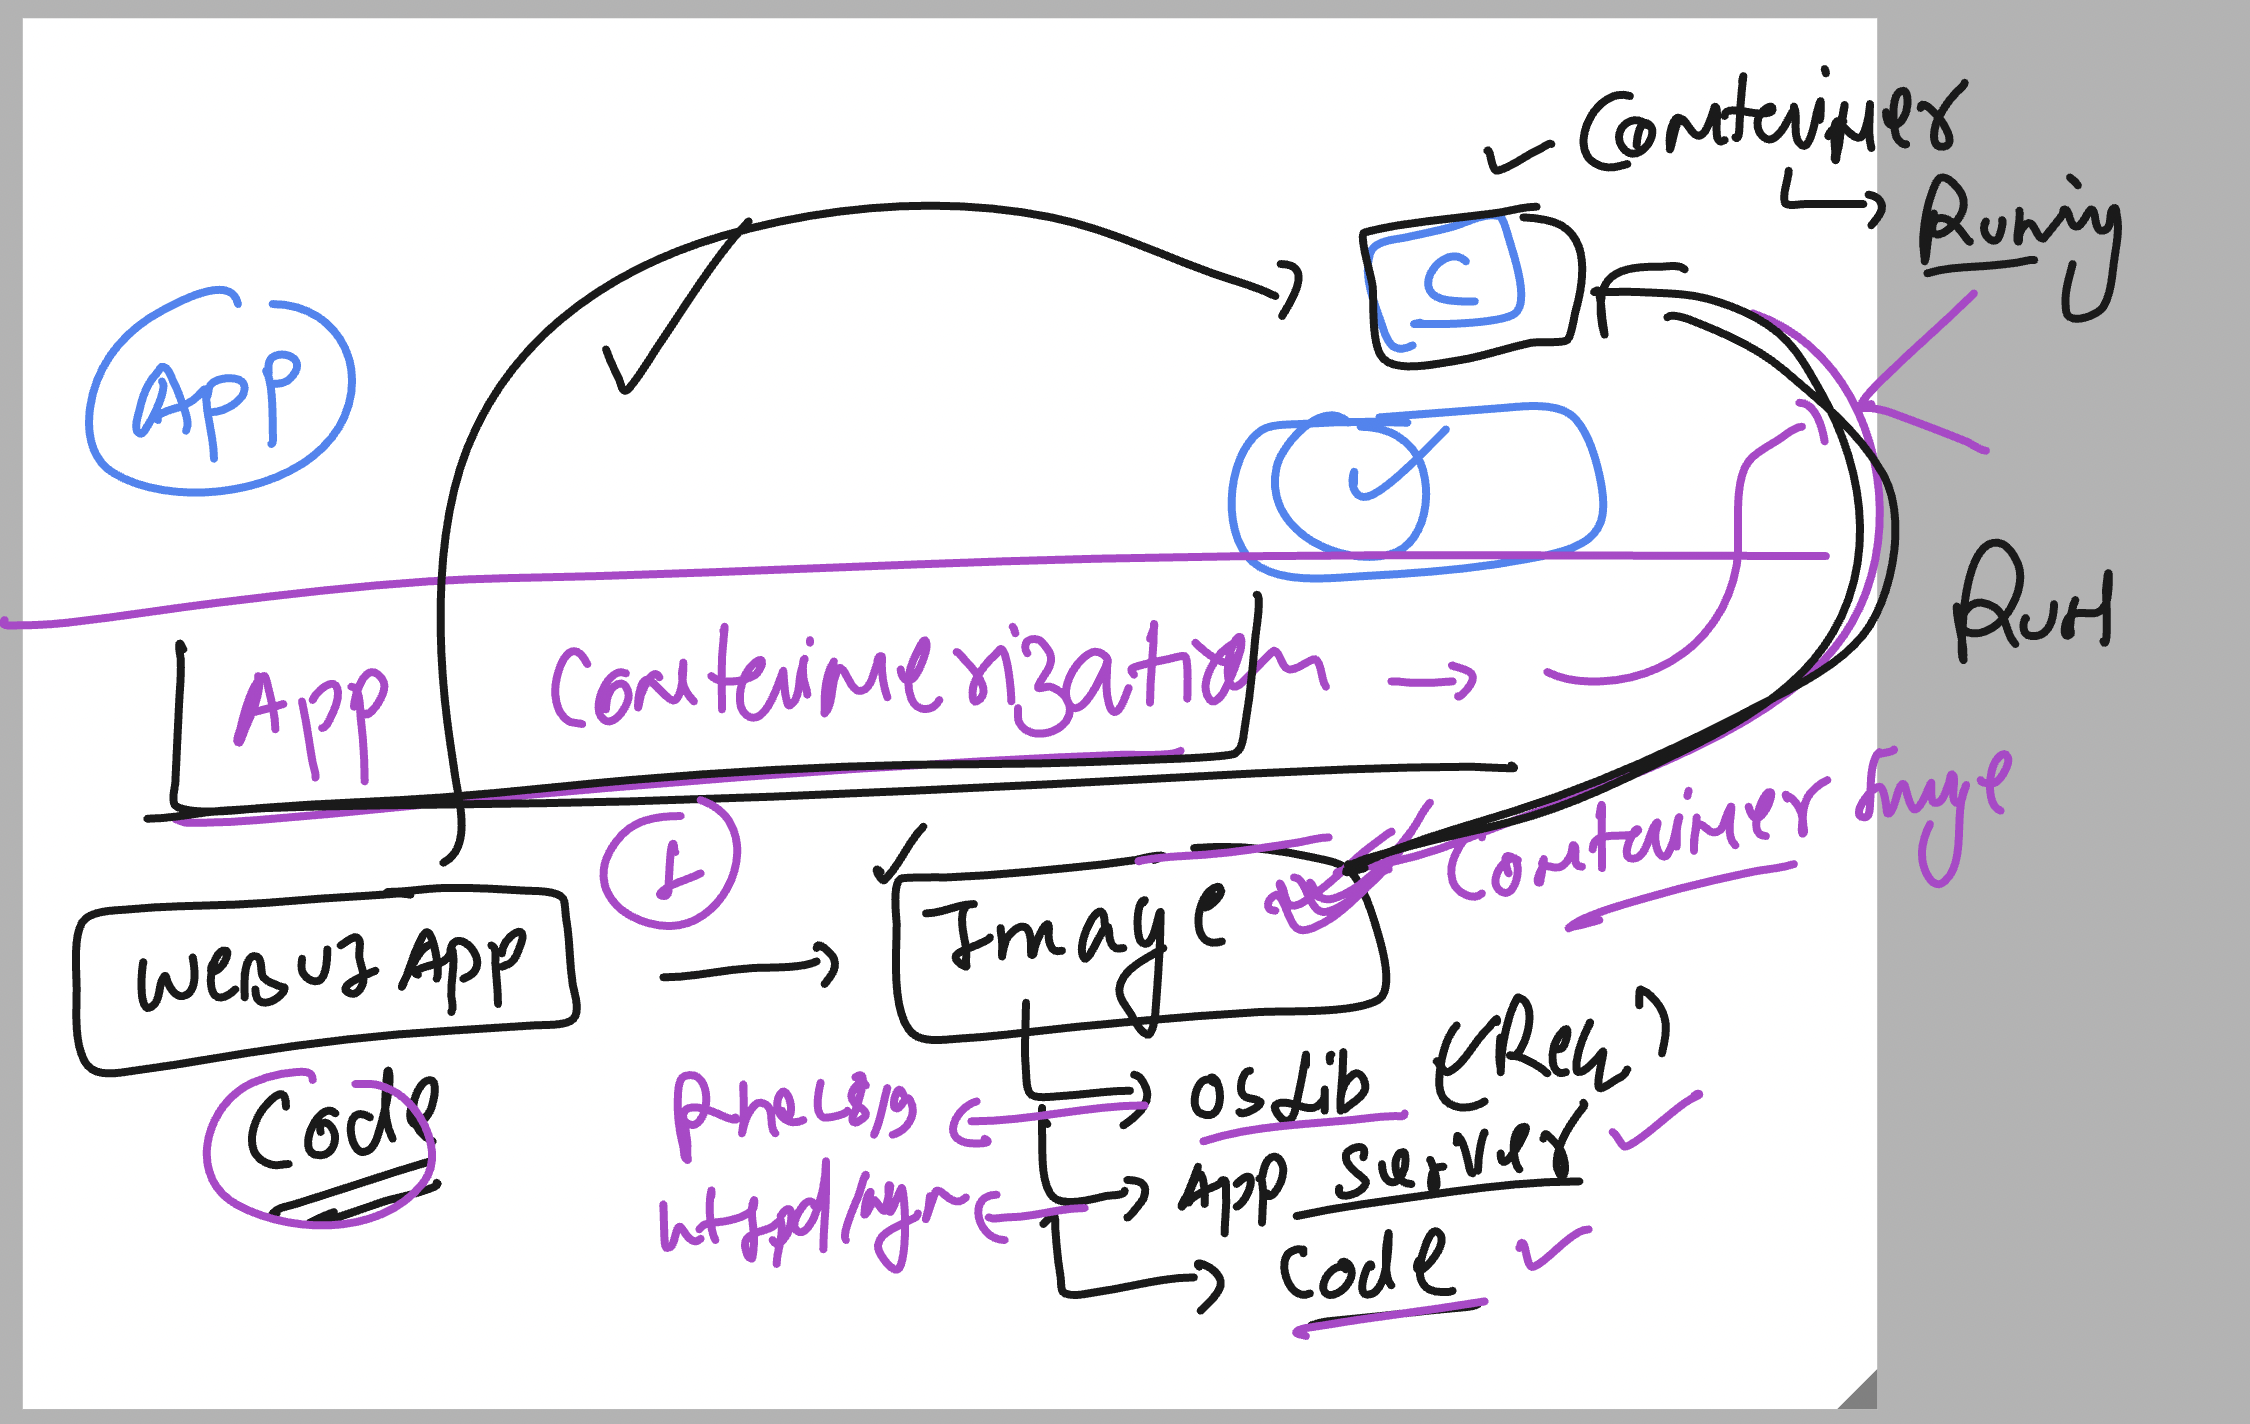 Container
Runing
C
App
Run
App Containerization
Container Image
1
Image
WEBUI App
Code
OS Lib (Req)
RHEL 8/9
App Server
httpd/ngn
Code